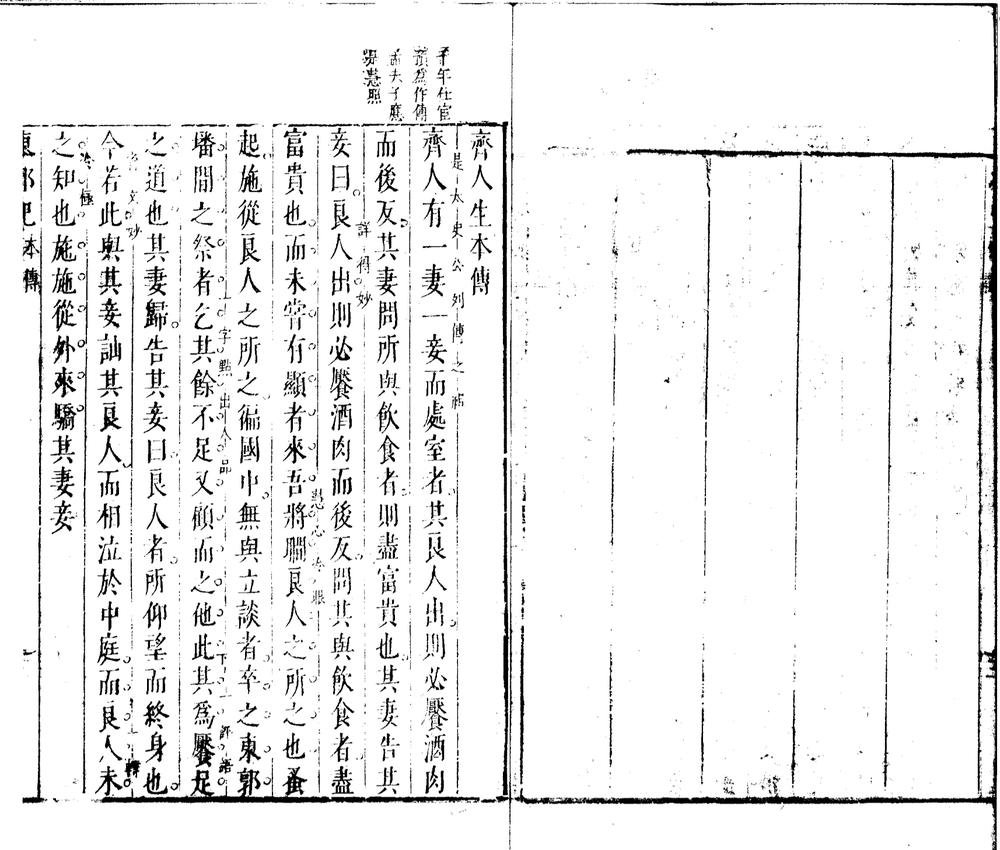 齊人生本傳
是太史公列傳之
齊人有一妻一妾而處室者其良人出則必饜酒肉
而後反其妻問所與飲食者則盡富貴也其妻告其
詳得妙
妾曰良人出則必饜酒肉而後反問其與飲食者盡
富貴也而未嘗有顯者來吾將瞷良人之所之也蚤
心冷眼
起施從良人之所之徧國中無與立談者卒之東郭
墦間之祭者乞其餘不足又顧而之他此其爲饜足
上字點出人品
下一評語
之道也其妻歸告其妾曰良人者所仰望而終身也
文妙
今若此與其妾訕其良人而相泣於中庭而良人未
冷極
之知也施施從外來驕其妻妾
東郭記 本傳
午仕宦
爲作傳
孟夫子應